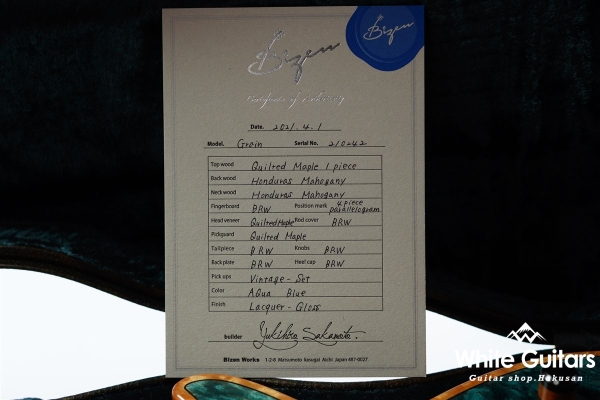 Bizen
Bizen
Certificate of Authenticity
Date. 2021. 4. 1
Model. Grain Serial No. 210242
Top wood Quilted Maple 1 piece
Back wood Honduras Mahogany
Neck wood Honduras Mahogany
Fingerboard BRW Position mark 4 piece parallelogram
Head veneer Quilted Maple Rod cover BRW
Pickguard Quilted Maple
Tailpiece BRW Knobs BRW
Back plate BRW Heel cap BRW
Pick ups Vintage-Set
Color Aqua Blue
Finish Lacquer-Gloss
builder Yukihiro Sakamoto.
Bizen Works 1-2-8 Matsumoto Kasugai Aichi Japan 487-0027
White Guitars
Guitar shop.Hakusan